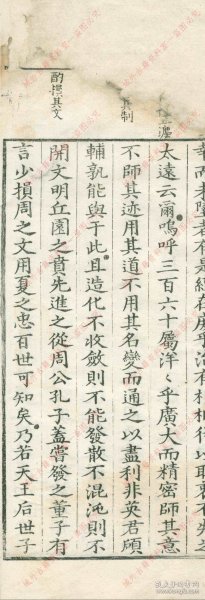 太遠云爾嗚呼三百六十屬洋〻乎廣大而精密師其意
不師其迹用其道不用其名變而通之以盡利非英君碩
輔孰能與于此且造化不收斂則不能發散不混沌則不
開文明丘園之賁先進之從周公孔子蓋嘗發之董子有
言少損周之文用夏之忠百世可知矣乃若天王后世子
其制
酌損其文